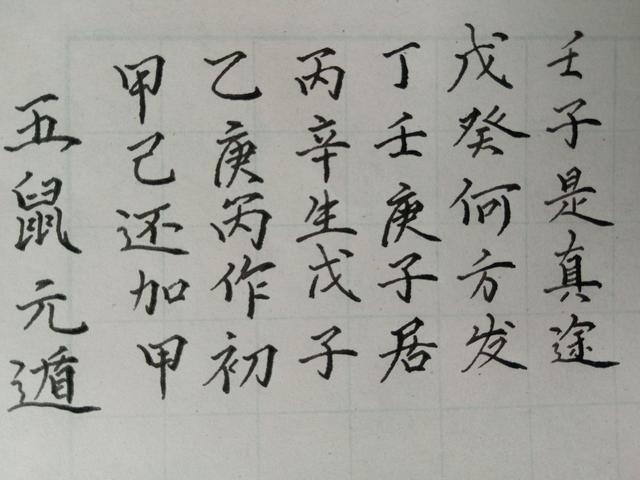 五鼠元遁
甲己还加甲
乙庚丙作初
丙辛生戊子
丁壬庚子居
戊癸何方发
壬子是真途